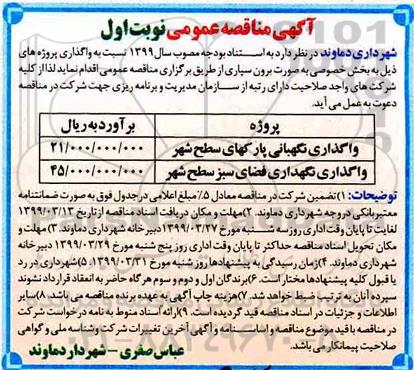 آگهی مناقصه عمومی نوبت اول
شهرداری دماوند در نظر دارد به استناد بودجه مصوب سال ۱۳۹۹ نسبت به واگذاری پروژه های
ذیل به بخش خصوصی به صورت برون سپاری از طریق برگزاری مناقصه عمومی اقدام نماید لذا از کلیه
شرکت های واجد صلاحیت دارای رتبه از سازمان مدیریت و برنامه ریزی جهت شرکت در مناقصه
دعوت به عمل می آید.
پروژه برآورد به ریال
واگذاری نگهبانی پارکهای سطح شهر ۲۱/۰۰۰/۰۰۰/۰۰۰
واگذاری نگهداری فضای سبز سطح شهر ۴۵/۰۰۰/۰۰۰/۰۰۰
توضیحات: ۱)تضمین شرکت در مناقصه معادل ۵٪ مبلغ اعلامی در جدول فوق به صورت ضمانتنامه
معتبر بانکی در وجه شهرداری دماوند. ۲)مهلت و مکان دریافت اسناد مناقصه از تاریخ ۱۳۹۹/۰۳/۱۳
لغایت تا پایان وقت اداری روز سه شنبه مورخ ۱۳۹۹/۰۳/۲۷ دبیرخانه شهرداری دماوند. ۳)مهلت و
مکان تحویل اسناد مناقصه حداکثر تا پایان وقت اداری روز پنج شنبه مورخ ۱۳۹۹/۰۳/۲۹ دبیرخانه
شهرداری دماوند. ۴)زمان رسیدگی به پیشنهادها روز شنبه مورخ ۱۳۹۹/۰۳/۳۱. ۵)شهرداری در رد
یا قبول کلیه پیشنهادها مختار است. ۶)برندگان اول و دوم و سوم هرگاه حاضر به انعقاد قرارداد نشوند
سپرده آنان به ترتیب ضبط خواهد شد. ۷)هزینه چاپ آگهی به عهده برنده مناقصه می باشد. ۸)سایر
اطلاعات و جزئیات در اسناد مناقصه قید گردیده است. ۹)ارائه اسناد منوط به نامه درخواست شرکت
در مناقصه با قید موضوع مناقصه و اساسنامه و آگهی آخرین تغییرات شرکت و شناسه ملی و گواهی
صلاحیت پیمانکار می باشد.
عباس صفری - شهردار دماوند